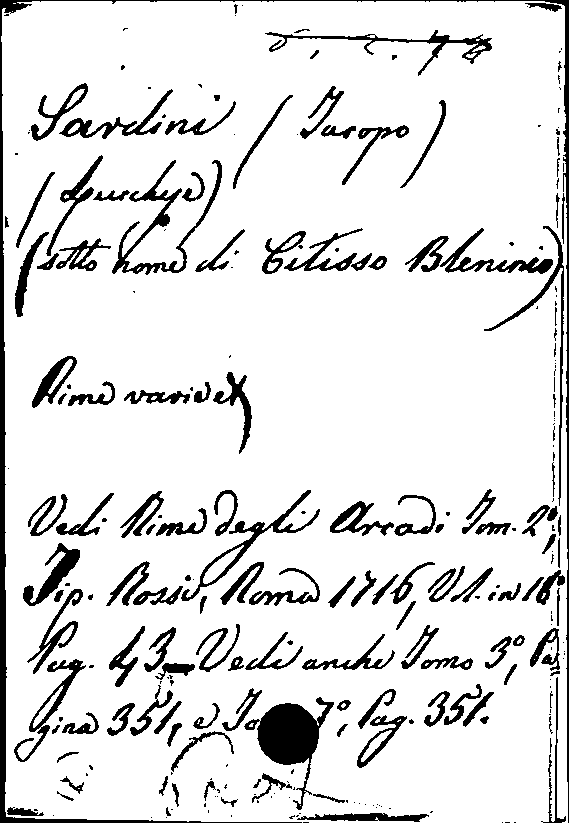 Sardini (Jacopo)
(Lucchese)
(sotto nome di Citisso Bleninio)
Rime varie
Vedi Rime degli Arcadi Tom. 2º,
Tip. Rossi, Roma 1716, Vol. in 16º
Pag. 43 — Vedi anche Tomo 3º, Pa
gina 351, e To 7º, Pag. 351.